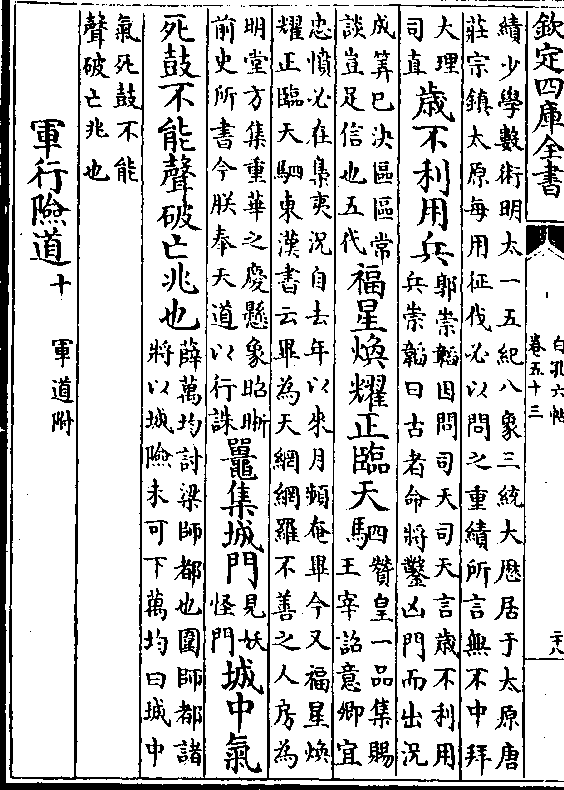 欽定四庫全書
白孔六帖
卷五十三
二十八
績少學數術明太一五紀八象三統大厯居于太原唐
莊宗鎮太原每用征伐必以問之重績所言無不中拜
大理
司直
歲不利用兵
郭崇韜因問司天司天言歲不利用
兵崇韜曰古者命將鑿凶門而出況
成筭已決區區常
談豈足信也五代
福星煥耀正臨天駟
贊皇一品集賜
王宰詔意卿宜
忠憤必在梟夷況自去年以來月頻奄畢今又福星煥
耀正臨天駟東漢書云畢為天網網羅不善之人房為
明堂方集重華之慶懸象昭晰
前史所書今朕奉天道以行誅
鼉集城門
見妖
怪門
城中氣
死鼓不能聲破亡兆也
薛萬均討梁師都也圍師都諸
將以城險未可下萬均曰城中
氣死鼓不能
聲破亡兆也
軍行險道十
軍道附